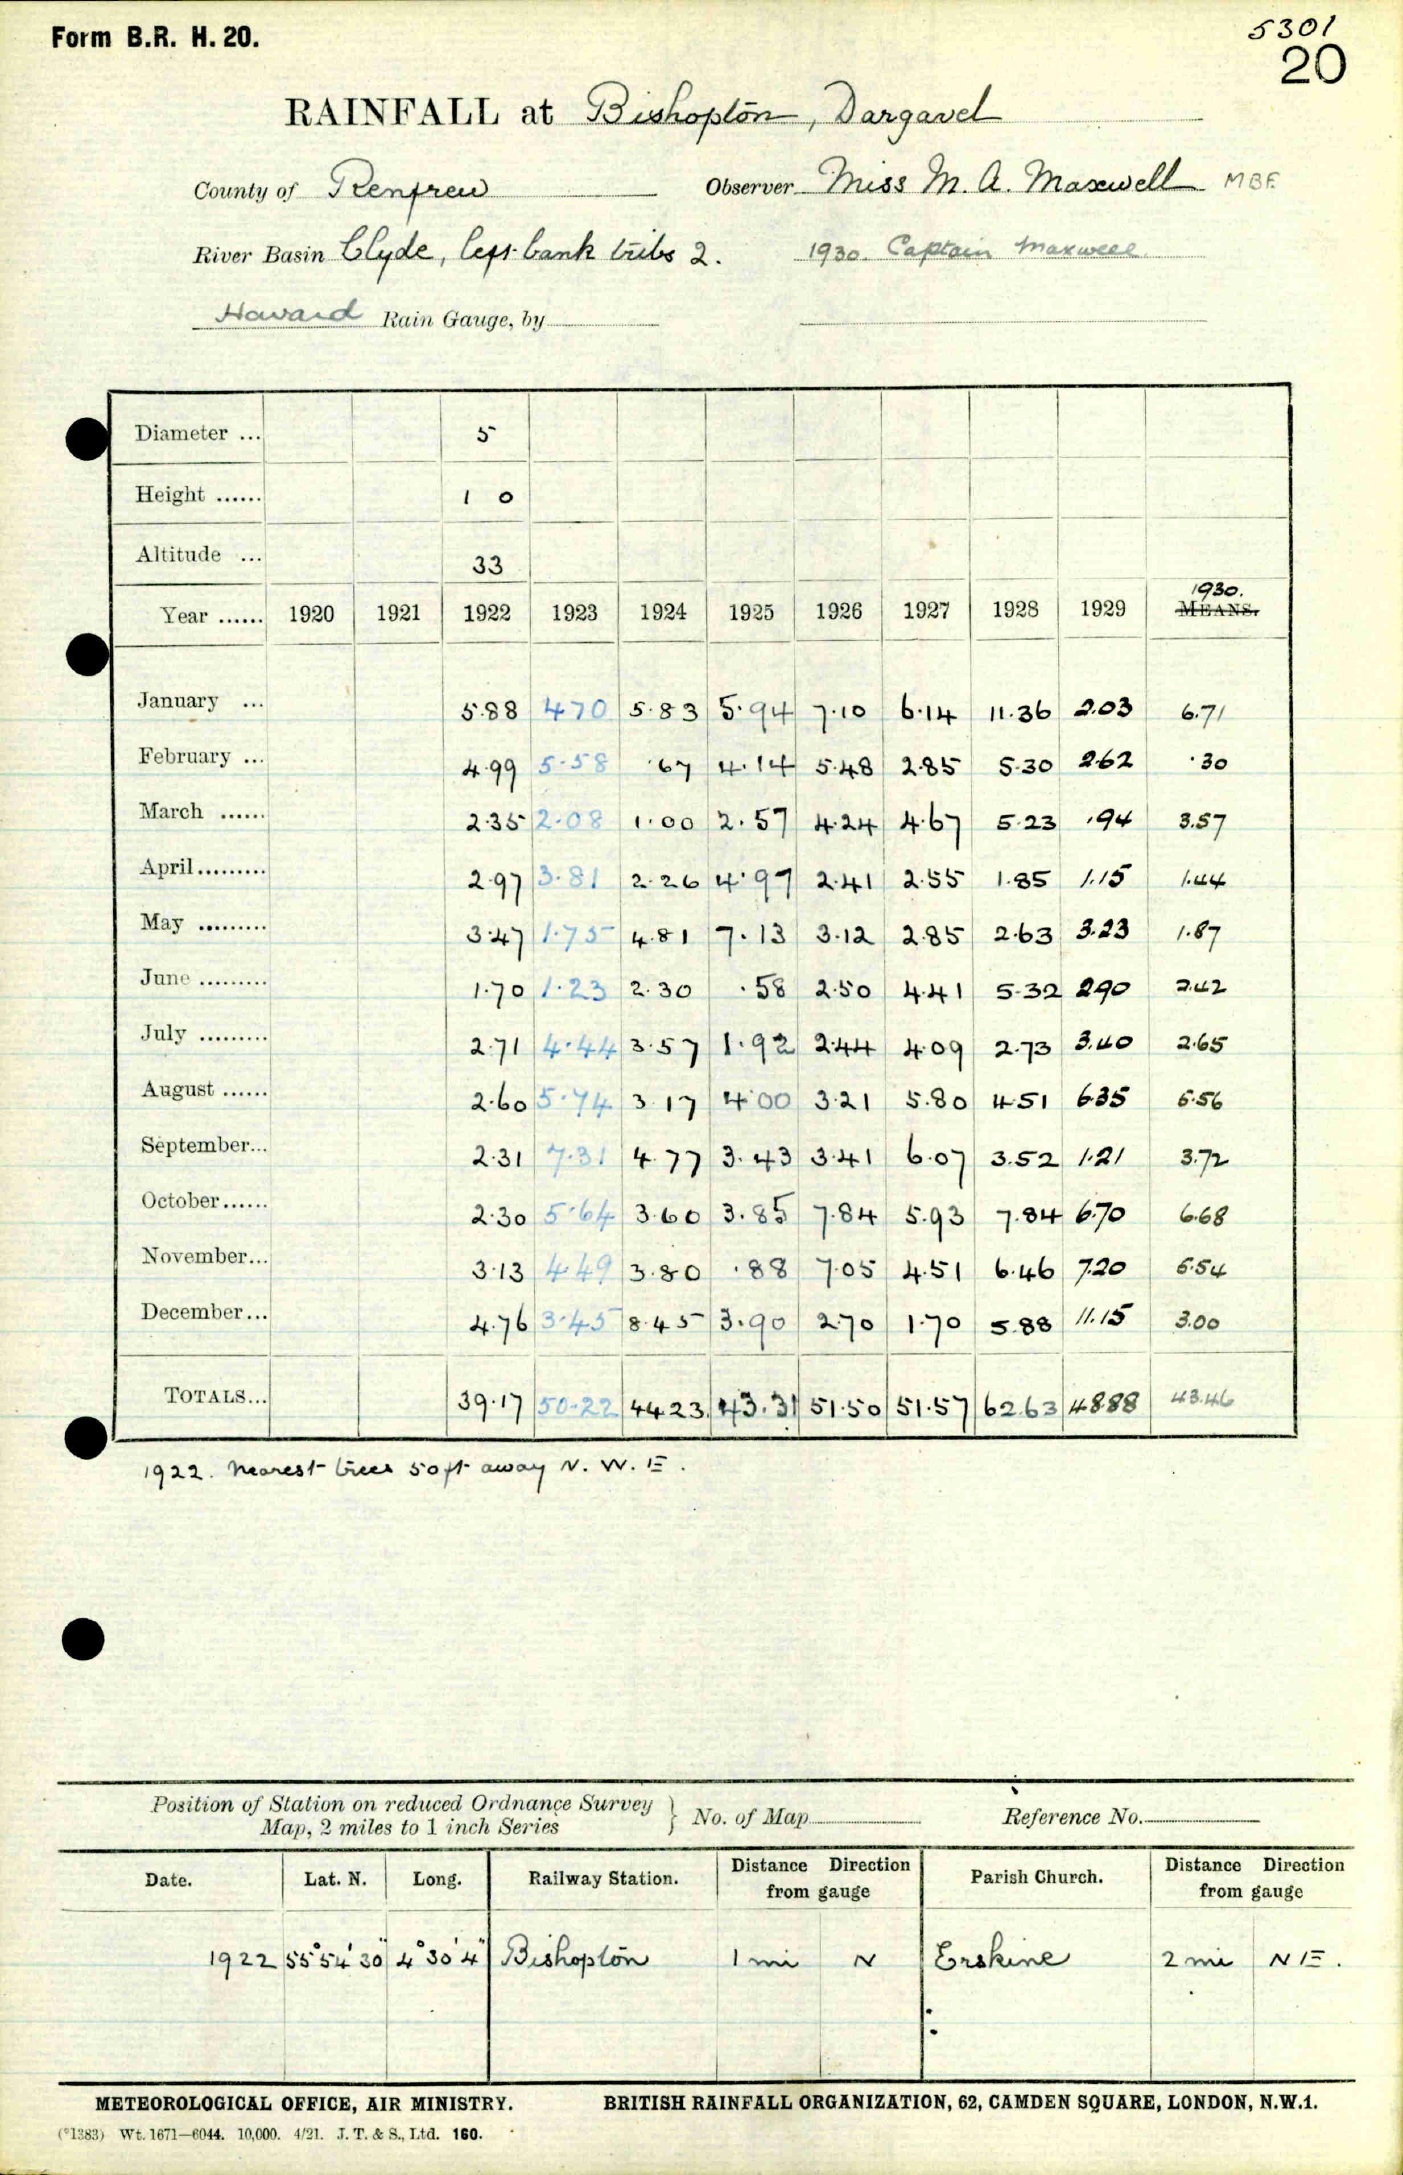 Form B.R. H. 20.
5301
20
RAINFALL at Bishopton, Dargavel
County of Renfrew Observer Miss M. A. Maxwell MBE
River Basin Clyde, left bank tribs 2. 1930. Captain Maxwell
Howard Rain Gauge, by
Diameter ... 5
Height ...... 1 0
Altitude ... 33
1930.
Year ...... 1920 1921 1922 1923 1924 1925 1926 1927 1928 1929 MEANS.
January ... 5.88 4.70 5.83 5.94 7.10 6.14 11.36 2.03 6.71
February ... 4.99 5.58 .67 4.14 5.48 2.85 5.30 2.62 .30
March ...... 2.35 2.08 1.00 2.57 4.24 4.67 5.23 .94 3.57
April......... 2.97 3.81 2.26 4.97 2.41 2.55 1.85 1.15 1.44
May ......... 3.47 1.75 4.81 7.13 3.12 2.85 2.63 3.23 1.87
June ......... 1.70 1.23 2.30 .58 2.50 4.41 5.32 2.90 2.42
July ......... 2.71 4.44 3.57 1.92 2.44 4.09 2.73 3.40 2.65
August ...... 2.60 5.74 3.17 4.00 3.21 5.80 4.51 6.35 5.56
September... 2.31 7.31 4.77 3.43 3.41 6.07 3.52 1.21 3.72
October...... 2.30 5.64 3.60 3.85 7.84 5.93 7.84 6.70 6.68
November... 3.13 4.49 3.80 .88 7.05 4.51 6.46 7.20 5.54
December... 4.76 3.45 8.45 3.90 2.70 1.70 5.88 11.15 3.00
TOTALS... 39.17 50.22 44.23 43.31 51.50 51.57 62.63 48.88 43.46
1922. Nearest trees 50 ft away N. W. E.
Position of Station on reduced Ordnance Survey
Map, 2 miles to 1 inch Series } No. of Map Reference No.
Date. Lat. N. Long. Railway Station. Distance Direction from gauge Parish Church. Distance Direction from gauge
1922 55° 54' 30" 4° 30' 4" Bishopton 1 mi N Erskine 2 mi N E.
METEOROLOGICAL OFFICE, AIR MINISTRY. BRITISH RAINFALL ORGANIZATION, 62, CAMDEN SQUARE, LONDON, N.W.1.
(*1383) Wt. 1671—6044. 10,000. 4/21. J. T. & S., Ltd. 160.